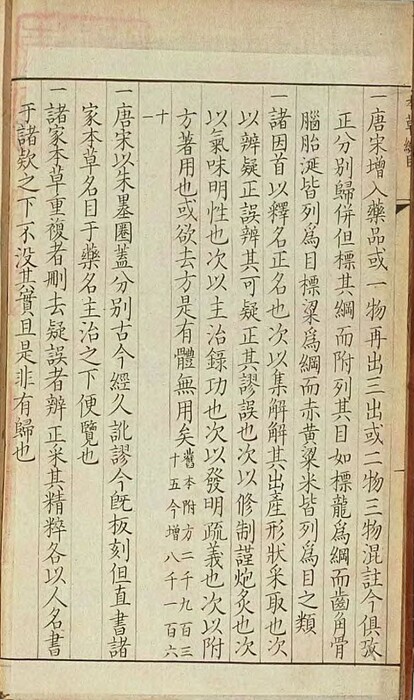 一唐宋增入藥品或一物再出三出或二物三物混註今俱攷
正分別歸併但標其綱而附列其目如標龍爲綱而齒角骨
腦胎涎皆列爲目標粱爲綱而赤黃粱米皆列爲目之類
一諸因首以釋名正名也次以集解解其出產形狀采取也次
以辨疑正誤辨其可疑正其謬誤也次以修制謹炮炙也次
以氣味明性也次以主治錄功也次以發明疏義也次以附
方著用也或欲去方是有體無用矣舊本附方二千九百三
十五今增八千一百六
十一
一唐宋以朱墨圈蓋分別古今經久訛謬今旣板刻但直書諸
家本草名目于藥名主治之下便覽也
一諸家本草重複者刪去疑誤者辨正采其精粹各以人名書
于諸欵之下不没其實且是非有歸也